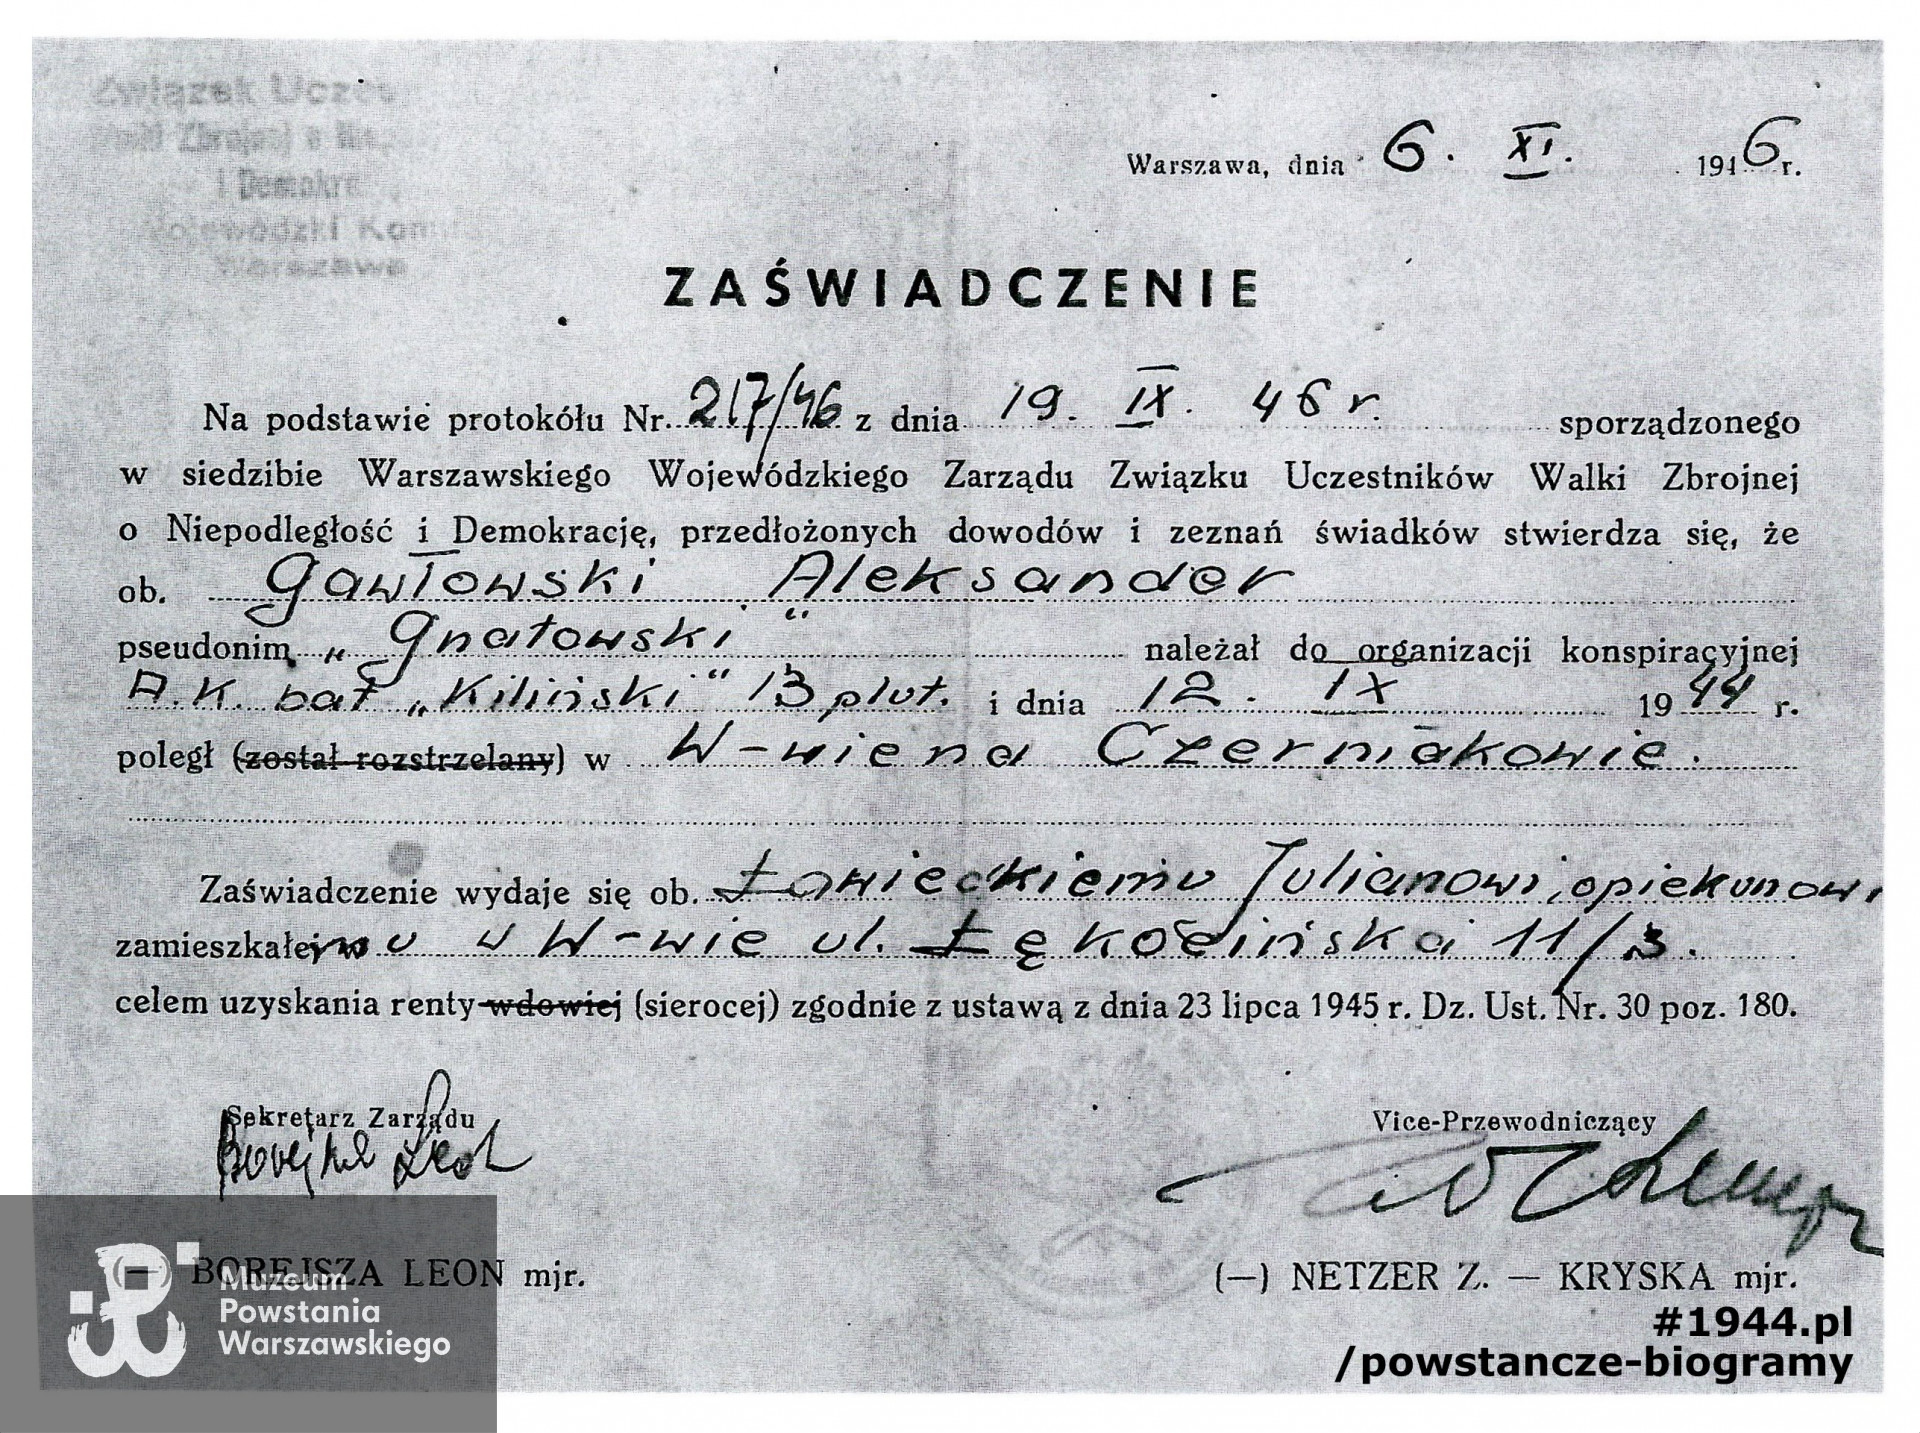 Związek Ucze
Walki Zbrojnej o Nie
i Demokra
Wojewódzki Komi
Warszawa
Warszawa, dnia 6. XI. 1946 r.
ZAŚWIADCZENIE
Na podstawie protokółu Nr. 217/46 z dnia 19. IX. 46 r. sporządzonego
w siedzibie Warszawskiego Wojewódzkiego Zarządu Związku Uczestników Walki Zbrojnej
o Niepodległość i Demokrację, przedłożonych dowodów i zeznań świadków stwierdza się, że
ob. Gawłowski Aleksander
pseudonim „Gnatowski" należał do organizacji konspiracyjnej
A.K. bat „Kiliński" 13 plut. i dnia 12. IX 1944 r.
poległ (został rozstrzelany) w W-wie na Czerniakowie.
Zaświadczenie wydaje się ob. Łowieckiemu Julianowi, opiekunowi
zamieszkałemu w W-wie ul. Łękocińska 11/3.
celem uzyskania renty wdowiej (sierocej) zgodnie z ustawą z dnia 23 lipca 1945 r. Dz. Ust. Nr. 30 poz. 180.
Sekretarz Zarządu
Vice-Przewodniczący
Borejsza Leon
(—) BOREJSZA LEON mjr.
(—) NETZER Z. — KRYSKA mjr.
Muzeum
Powstania
Warszawskiego
#1944.pl
/powstancze-biogramy